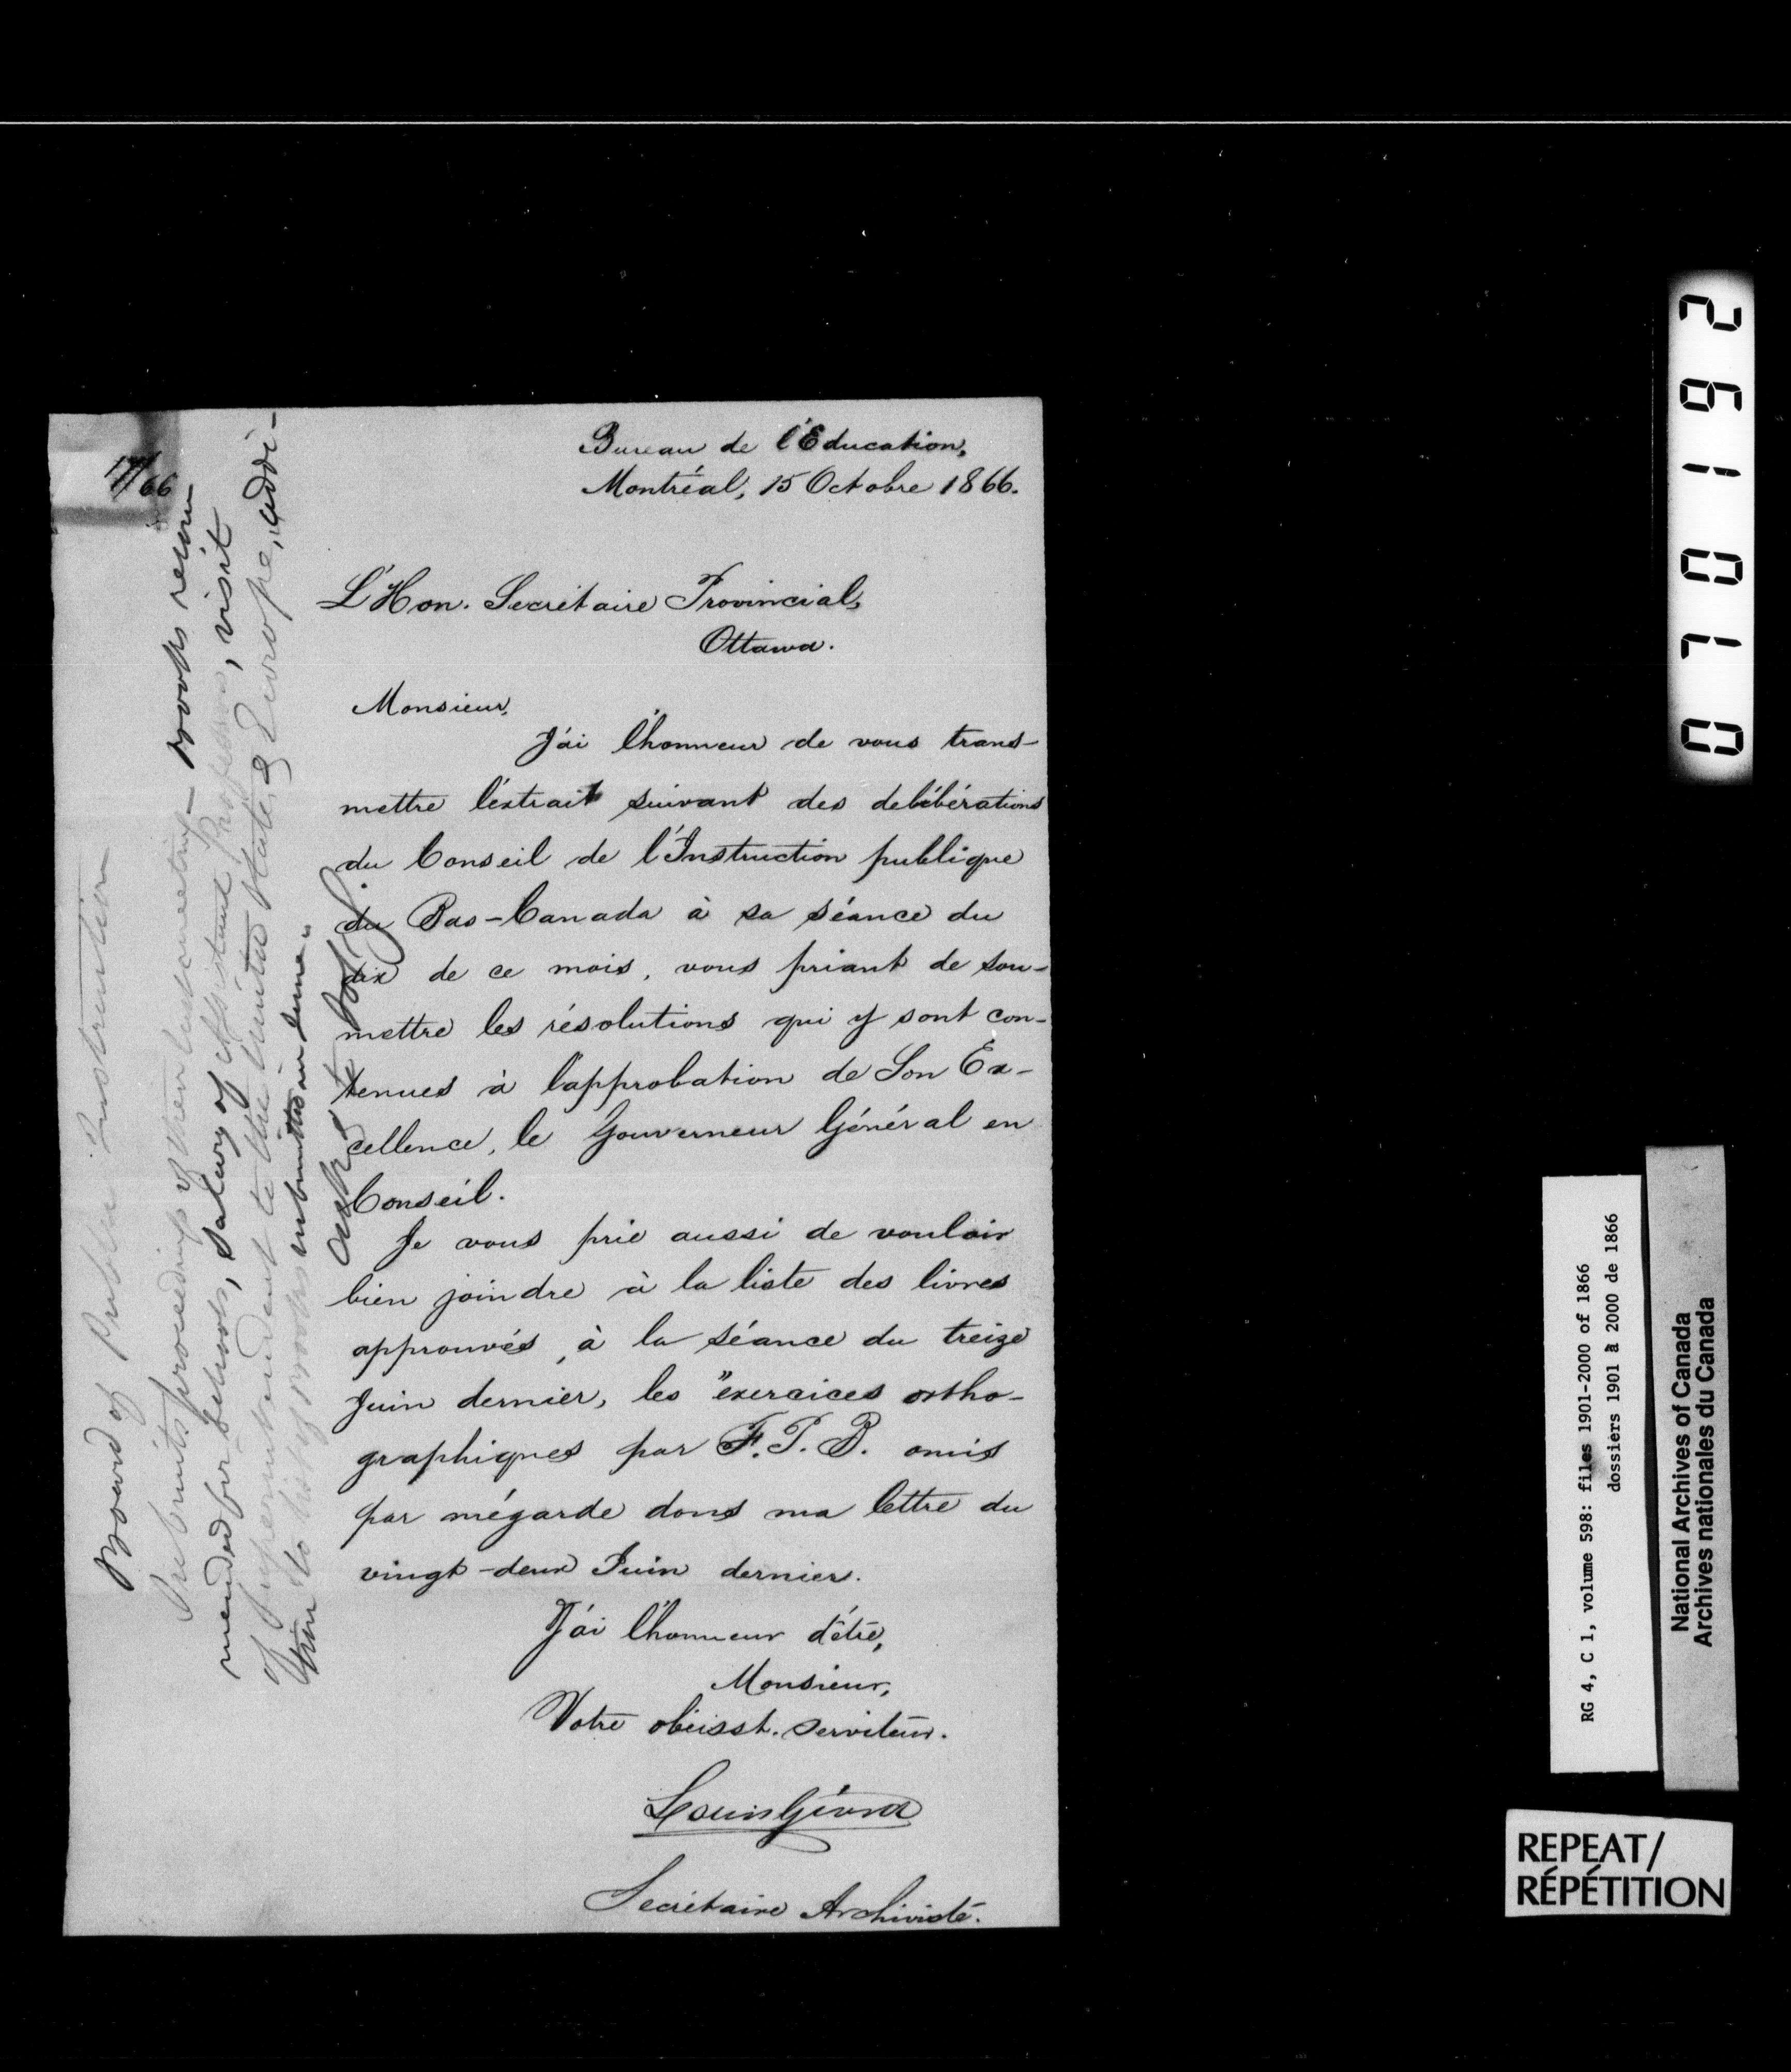 Bureau de l'Education,
Montréal, 15 Octobre 1866.
L'Hon. Secrétaire Provincial,
Ottawa.
Monsieur,
J'ai l'honneur de vous trans-
mettre l'extrait suivant des delibérations
du Conseil de l'Instruction publique
du Bas-Canada à sa séance du
dix de ce mois, vous priant de sou-
mettre les résolutions qui y sont con-
tenues à l'approbation de Son Ex-
cellence, le Gouverneur Général en
Conseil.
Je vous prie aussi de vouloir
bien joindre à la liste des livres
approuvés, à la séance du treize
Juin dernier, les "exercices ortho-
graphiques par F.P.B. omis
par mégarde dans ma lettre du
vingt-deux Juin dernier.
J'ai l'honneur d'être,
Monsieur,
Votre obéisst. serviteur.
Louis Giard
Secrétaire Archiviste.
17/66
Board of Public Instruction
Submits proceedings of their last meeting - Books recom
mended for schools, Salary of Assistant Professors, visit
of Superintendent to the United States & Europe, addi-
tion to list of Books submitted in June.
26170
RG 4, C 1, volume 598: files 1901-2000 of 1866
dossiers 1901 à 2000 de 1866
National Archives of Canada
Archives nationales du Canada
REPEAT/
RÉPÉTITION